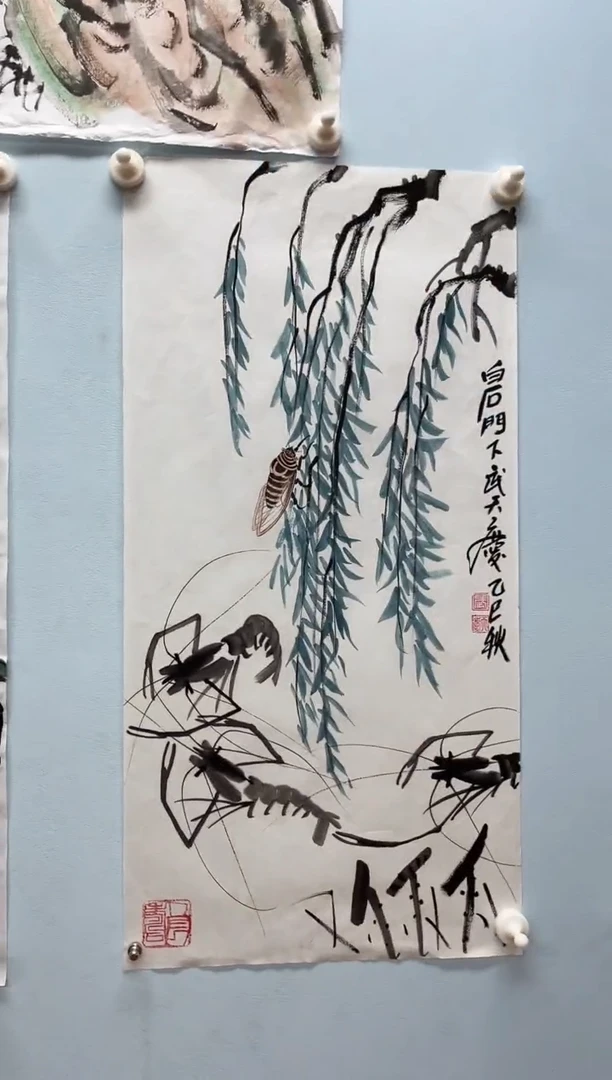 白石門下武天慶乙巳秋